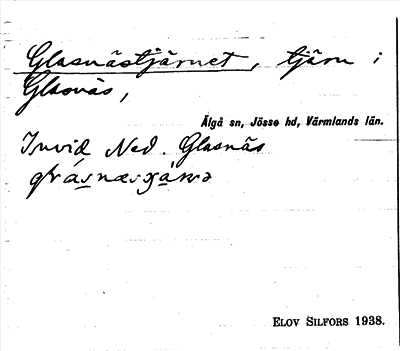 Glasnästjärnet, tjärn i
Glasnäs,
Älgå sn, Jösse hd, Värmlands län.
Invid Ned. Glasnäs
ELOV SILFORS 1938.